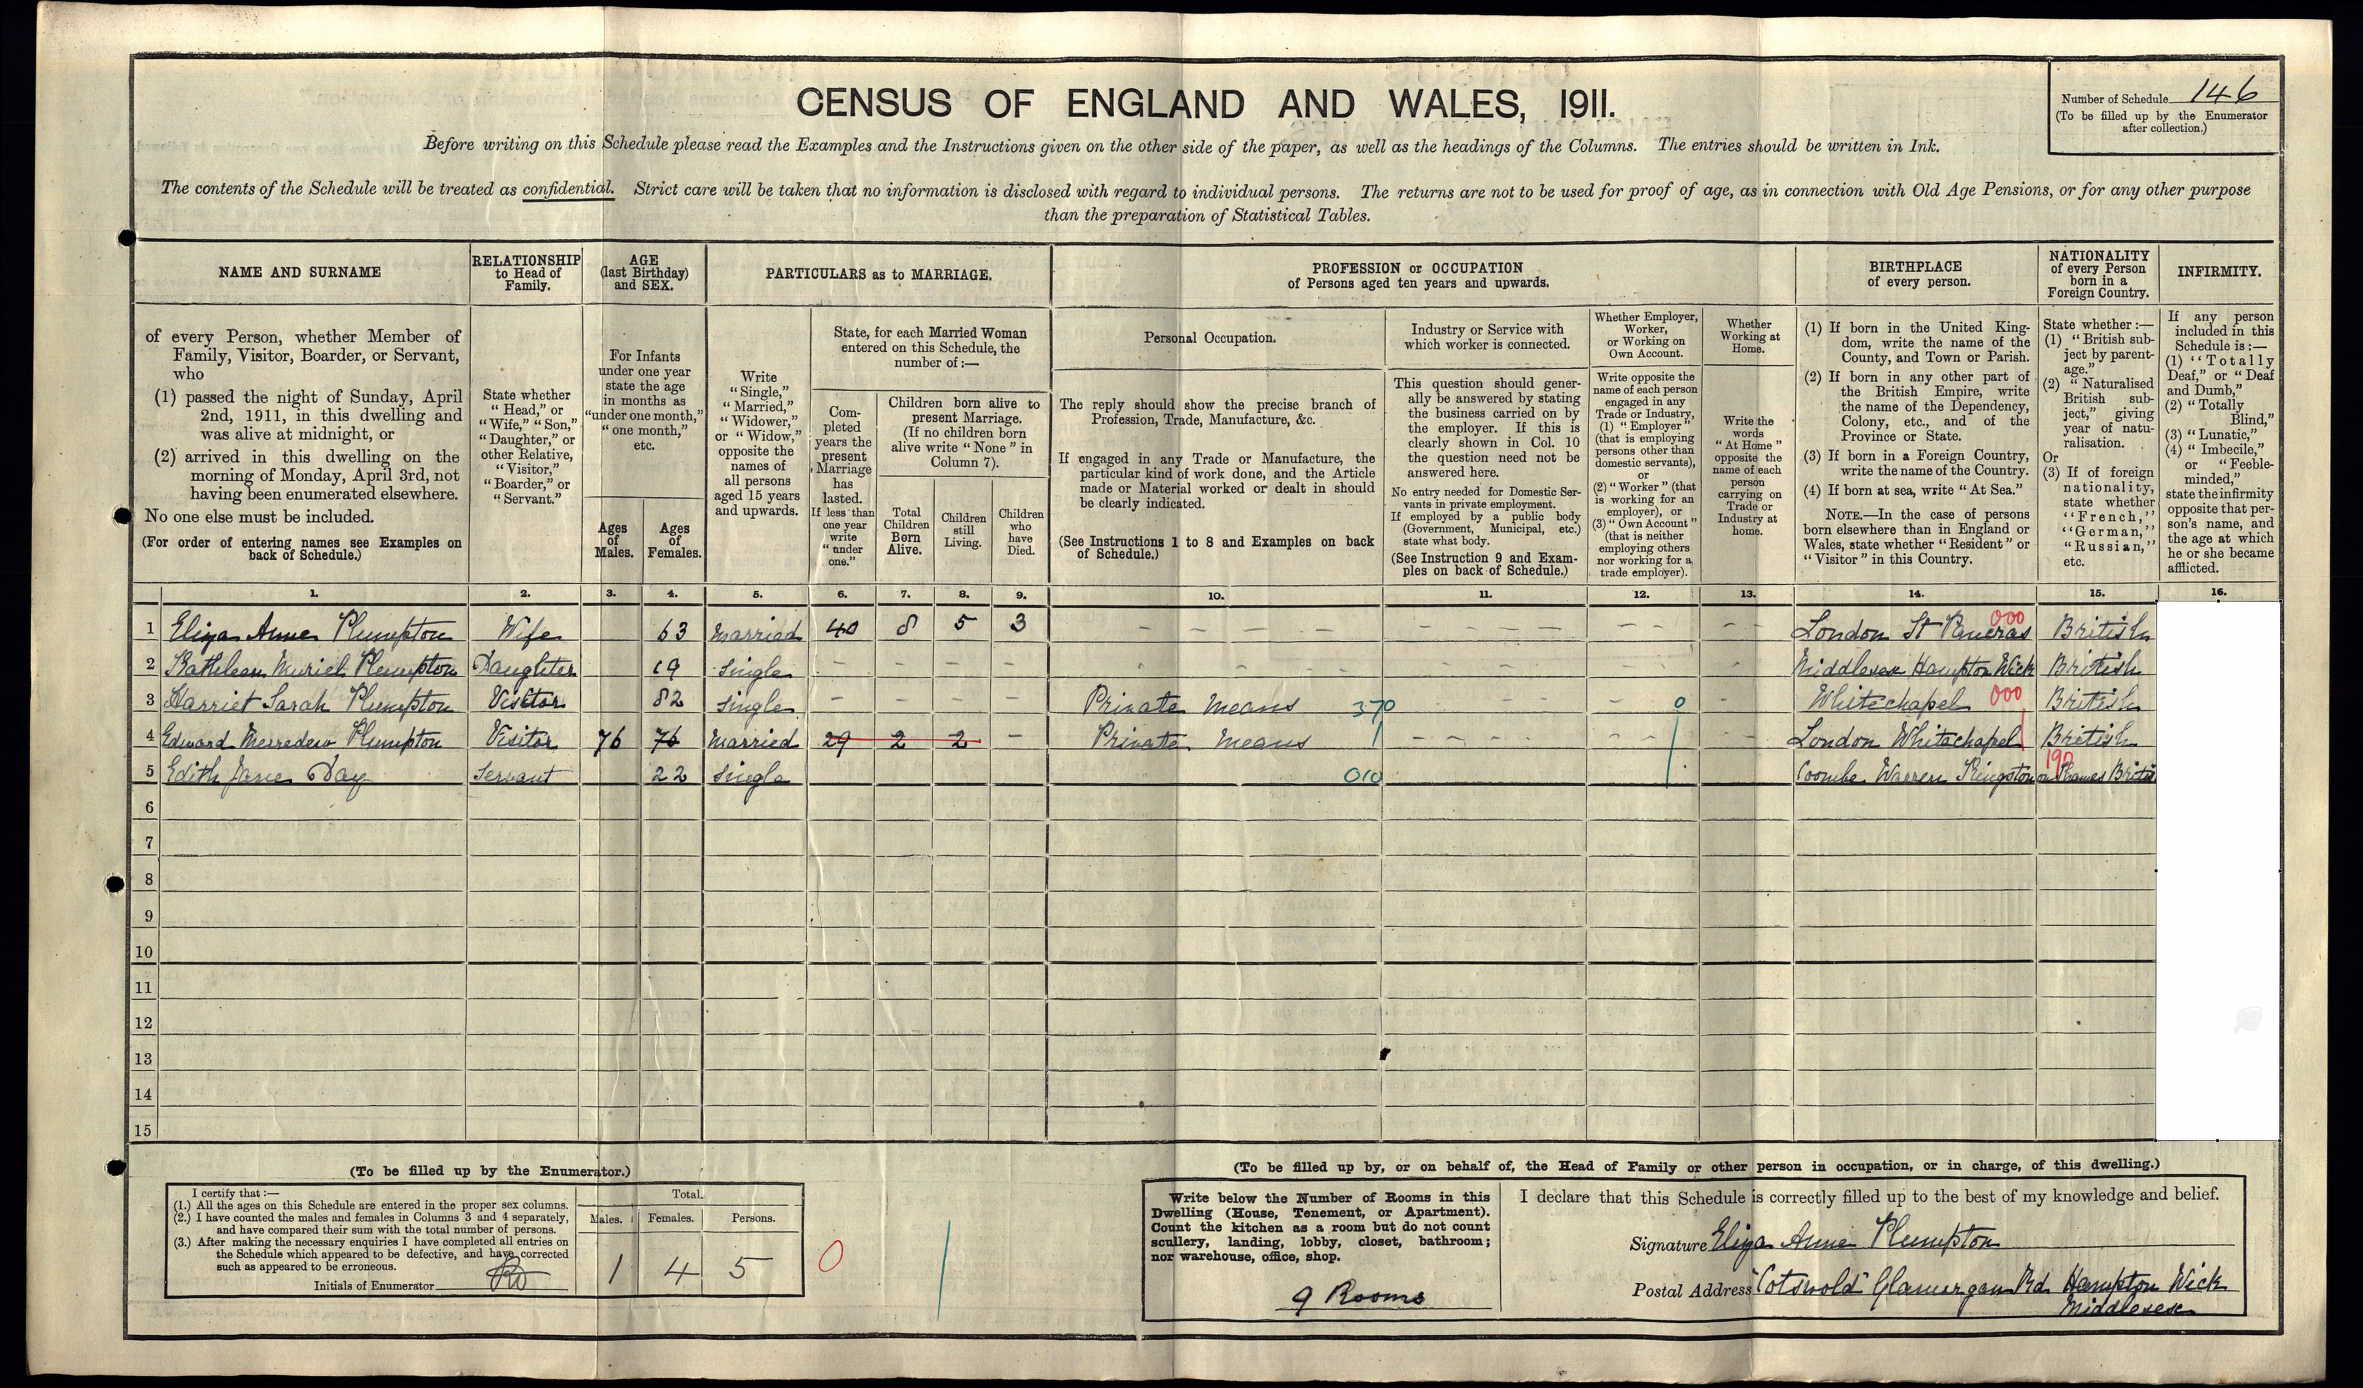 CENSUS OF ENGLAND AND WALES, 1911.
Number of Schedule 146
(To be filled up by the Enumerator
after collection.)
Before writing on this Schedule please read the Examples and the Instructions given on the other side of the paper, as well as the headings of the Columns. The entries should be written in Ink.
The contents of the Schedule will be treated as confidential. Strict care will be taken that no information is disclosed with regard to individual persons. The returns are not to be used for proof of age, as in connection with Old Age Pensions, or for any other purpose
than the preparation of Statistical Tables.
NAME AND SURNAME
of every Person, whether Member of
Family, Visitor, Boarder, or Servant,
who
(1) passed the night of Sunday, April
2nd, 1911, in this dwelling and
was alive at midnight, or
(2) arrived in this dwelling on the
morning of Monday, April 3rd, not
having been enumerated elsewhere.
No one else must be included.
(For order of entering names see Examples on
back of Schedule.)
RELATIONSHIP
to Head of
Family.
State whether
"Head," or
"Wife," "Son,"
"Daughter," or
other Relative,
"Visitor,"
"Boarder," or
"Servant."
AGE
(last Birthday)
and SEX.
For Infants
under one year
state the age
in months as
"under one month,"
"one month,"
etc.
Ages
of
Males.
Ages
of
Females.
PARTICULARS as to MARRIAGE.
Write
"Single,"
"Married,"
"Widower,"
or "Widow,"
opposite the
names of
all persons
aged 15 years
and upwards.
State, for each Married Woman
entered on this Schedule, the
number of:—
Com-
pleted
years the
present
Marriage
has
lasted.
If less than
one year
write
"under
one."
Children born alive to
present Marriage.
(If no children born
alive write "None" in
Column 7).
Total
Children
Born
Alive.
Children
still
Living.
Children
who
have
Died.
PROFESSION or OCCUPATION
of Persons aged ten years and upwards.
Personal Occupation.
The reply should show the precise branch of
Profession, Trade, Manufacture, &c.
If engaged in any Trade or Manufacture, the
particular kind of work done, and the Article
made or Material worked or dealt in should
be clearly indicated.
(See Instructions 1 to 8 and Examples on back
of Schedule.)
Industry or Service with
which worker is connected.
This question should gener-
ally be answered by stating
the business carried on by
the employer. If this is
clearly shown in Col. 10
the question need not be
answered here.
No entry needed for Domestic Ser-
vants in private employment.
If employed by a public body
(Government, Municipal, etc.)
state what body.
(See Instruction 9 and Exam-
ples on back of Schedule.)
Whether Employer,
Worker,
or Working on
Own Account.
Write opposite the
name of each person
engaged in any
Trade or Industry,
(1) "Employer"
(that is employing
persons other than
domestic servants),
or
(2) "Worker" (that
is working for an
employer), or
(3) "Own Account"
(that is neither
employing others
nor working for a
trade employer).
Whether
Working at
Home.
Write the
words
"At Home"
opposite the
name of each
person
carrying on
Trade or
Industry at
home.
BIRTHPLACE
of every person.
(1) If born in the United King-
dom, write the name of the
County, and Town or Parish.
(2) If born in any other part of
the British Empire, write
the name of the Dependency,
Colony, etc., and of the
Province or State.
(3) If born in a Foreign Country,
write the name of the Country.
(4) If born at sea, write "At Sea."
NOTE.—In the case of persons
born elsewhere than in England or
Wales, state whether "Resident" or
"Visitor" in this Country.
NATIONALITY
of every Person
born in a
Foreign Country.
State whether:—
(1) "British sub-
ject by parent-
age."
(2) "Naturalised
British sub-
ject," giving
year of natu-
ralisation.
Or
(3) If of foreign
nationality,
state whether
"French,"
"German,"
"Russian,"
etc.
INFIRMITY.
If any person
included in this
Schedule is:—
(1) "Totally
Deaf," or "Deaf
and Dumb,"
(2) "Totally
Blind,"
(3) "Lunatic,"
(4) "Imbecile,"
or "Feeble-
minded,"
state the infirmity
opposite that per-
son's name, and
the age at which
he or she became
afflicted.
1. 2. 3. 4. 5. 6. 7. 8. 9. 10. 11. 12. 13. 14. 15. 16.
1 Eliza Anne Plumpton Wife 63 Married 40 8 5 3 — London St Pancras 000 British
2 Kathleen Muriel Plumpton Daughter 19 Single — Middlesex Hampton Wick British
3 Harriet Sarah Plumpton Visitor 82 Single — Private Means 370 0 Whitechapel 000 British
4 Edward Plumpton Visitor 76 76 Married 29 2 2 — Private Means London Whitechapel British
5 Edith Jane Day Servant 22 Single 010 Coombe Warren Kingston on Thames 190 British
6
7
8
9
10
11
12
13
14
15
(To be filled up by the Enumerator.)
I certify that:—
(1.) All the ages on this Schedule are entered in the proper sex columns.
(2.) I have counted the males and females in Columns 3 and 4 separately,
and have compared their sum with the total number of persons.
(3.) After making the necessary enquiries I have completed all entries on
the Schedule which appeared to be defective, and have corrected
such as appeared to be erroneous.
Initials of Enumerator
Total.
Males. Females. Persons.
1 4 5
0
(To be filled up by, or on behalf of, the Head of Family or other person in occupation, or in charge, of this dwelling.)
Write below the Number of Rooms in this
Dwelling (House, Tenement, or Apartment).
Count the kitchen as a room but do not count
scullery, landing, lobby, closet, bathroom;
nor warehouse, office, shop.
9 Rooms
I declare that this Schedule is correctly filled up to the best of my knowledge and belief.
Signature Eliza Anne Plumpton
Postal Address "Cotswold" Glamorgan Rd Hampton Wick
Middlesex